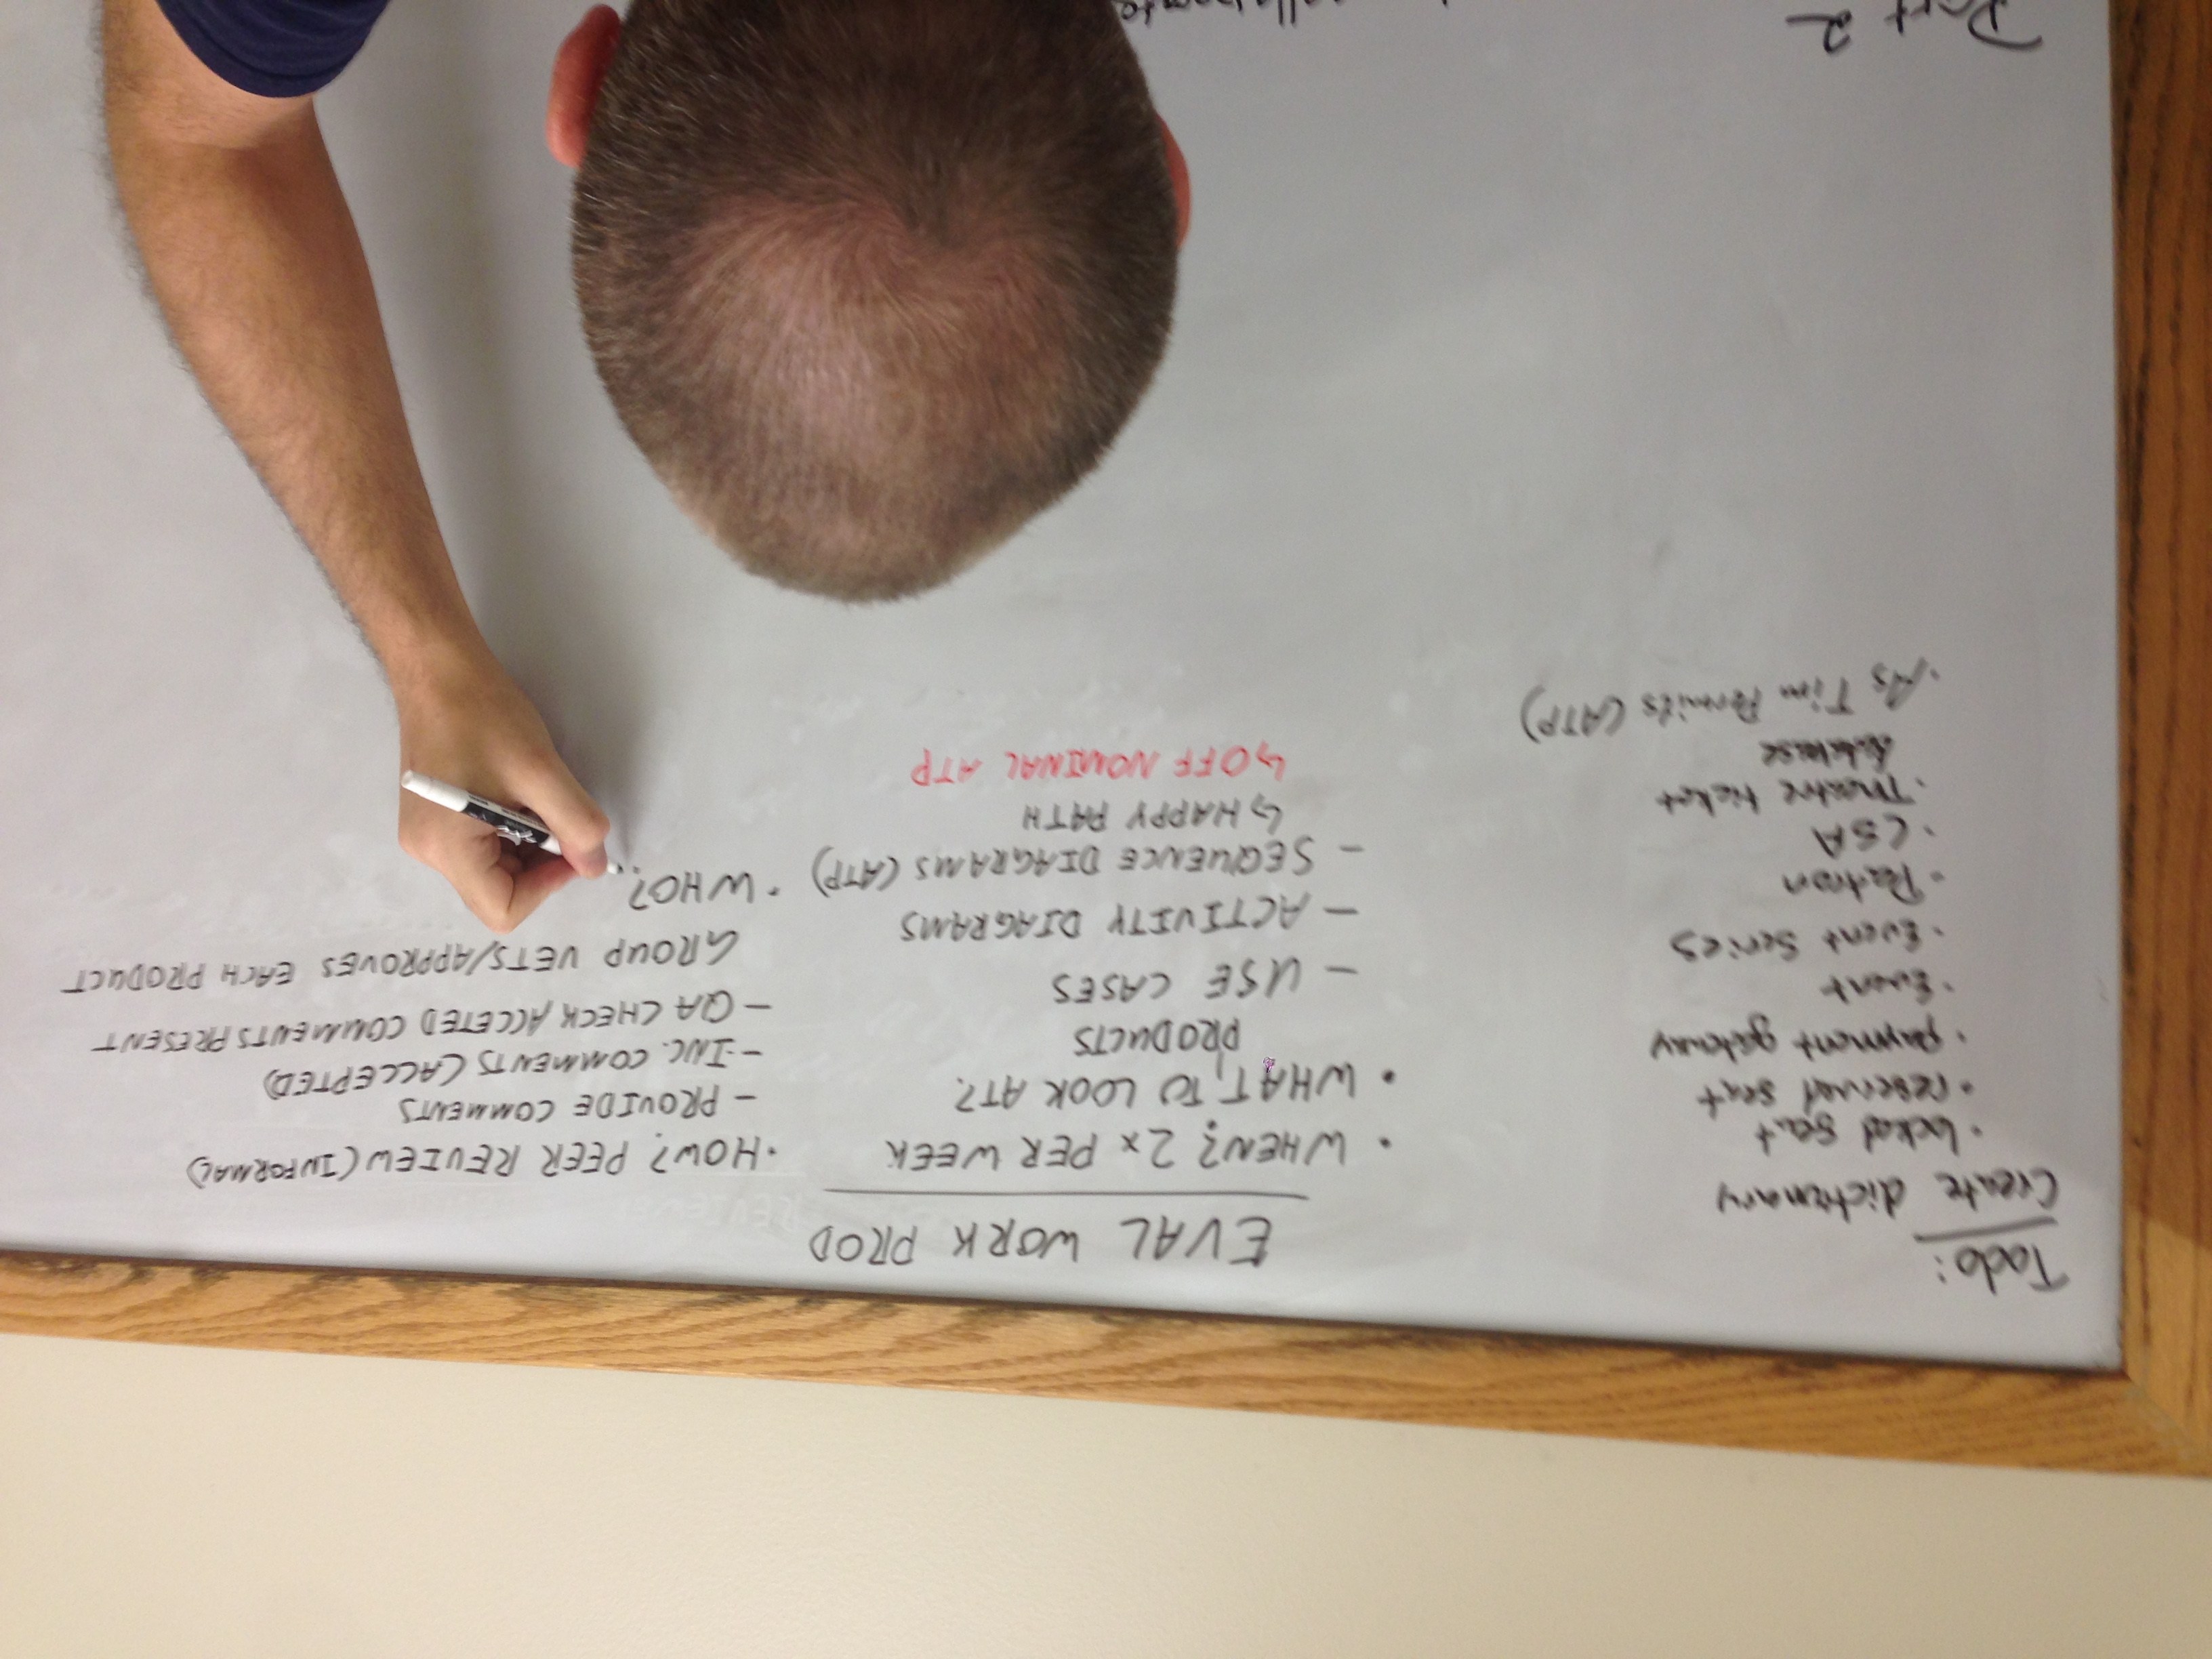 Todo:
Create dictionary
· locked seat
· reserved seat
· payment gateway
· Event
· Event Series
· Patron
· CSA
· Theatre ticket
database
· As Tim Permits (ATP)
EVAL WORK PROD
• WHEN? 2x PER WEEK
• WHAT TO LOOK AT?
PRODUCTS
– USE CASES
– ACTIVITY DIAGRAMS
– SEQUENCE DIAGRAMS (ATP)
↳ HAPPY PATH
↳ OFF NOMINAL ATP
· HOW? PEER REVIEW (INFORMAL)
– PROVIDE COMMENTS
– INC. COMMENTS (ACCEPTED)
– QA CHECK ACCETED COMMENTS PRESENT
GROUP VETS/APPROVES EACH PRODUCT
· WHO?
Part 2
collaborate